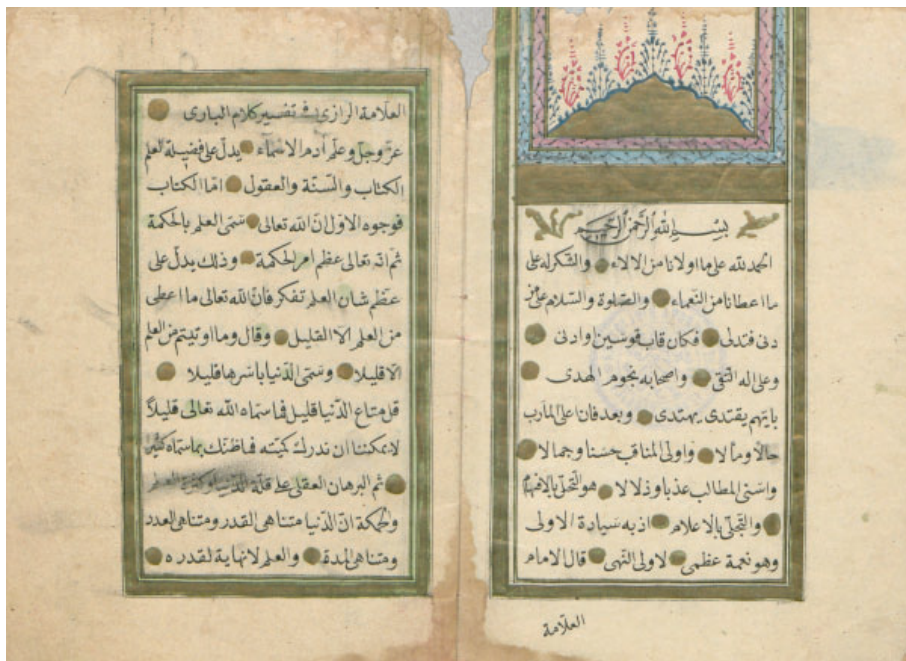 بسم الله الرحمن الرحيم
الحمد لله على ما اولانا من الالاء والشكر له على
ما اعطانا من النعماء والصلوة والسلام على من
دنى فتدلى فكان قاب قوسين او ادنى
وعلى اله التقى واصحابه نجوم الهدى
بايتهم يقتدى يهتدى وبعد فان اعلى المأرب
حالا ومآلا واولى المناقب حسنا وجمالا
واسنى المطالب عذبا وذلالا هو التحلى بالافهام
والتجلى بالاعلام اذ به سيادة الاولى
وهو نعمة عظمى لاولى النهى قال الامام
العلامة
العلامة الرازى فى تفسير كلام البارى
عز وجل وعلم آدم الاسمآء يدل على فضيلة العلم
الكتاب والسنة والعقول امّا الكتاب
فوجوه الاول انّ الله تعالى سمّى العلم بالحكمة
ثم انه تعالى عظم امر الحكمة وذلك يدل على
عظم شان العلم تفكر فانّ الله تعالى ما اعطى
من العلم الا القليل وقال وما اوتيتم من العلم
الا قليلا وسمّى الدّنيا باسرها قليلا
قل متاع الدّنيا قليل فما سماه الله تعالى قليلاً
لا يمكننا ان ندرك كميّته فما ظنّك بما سماه كثيرا
ثم البرهان العقلى على قلّة الدّنيا وكثرة العلم
والحكمة انّ الدّنيا متناهى القدر ومتناهى العدد
ومتناهى المدة والعلم لا نهاية لقدره